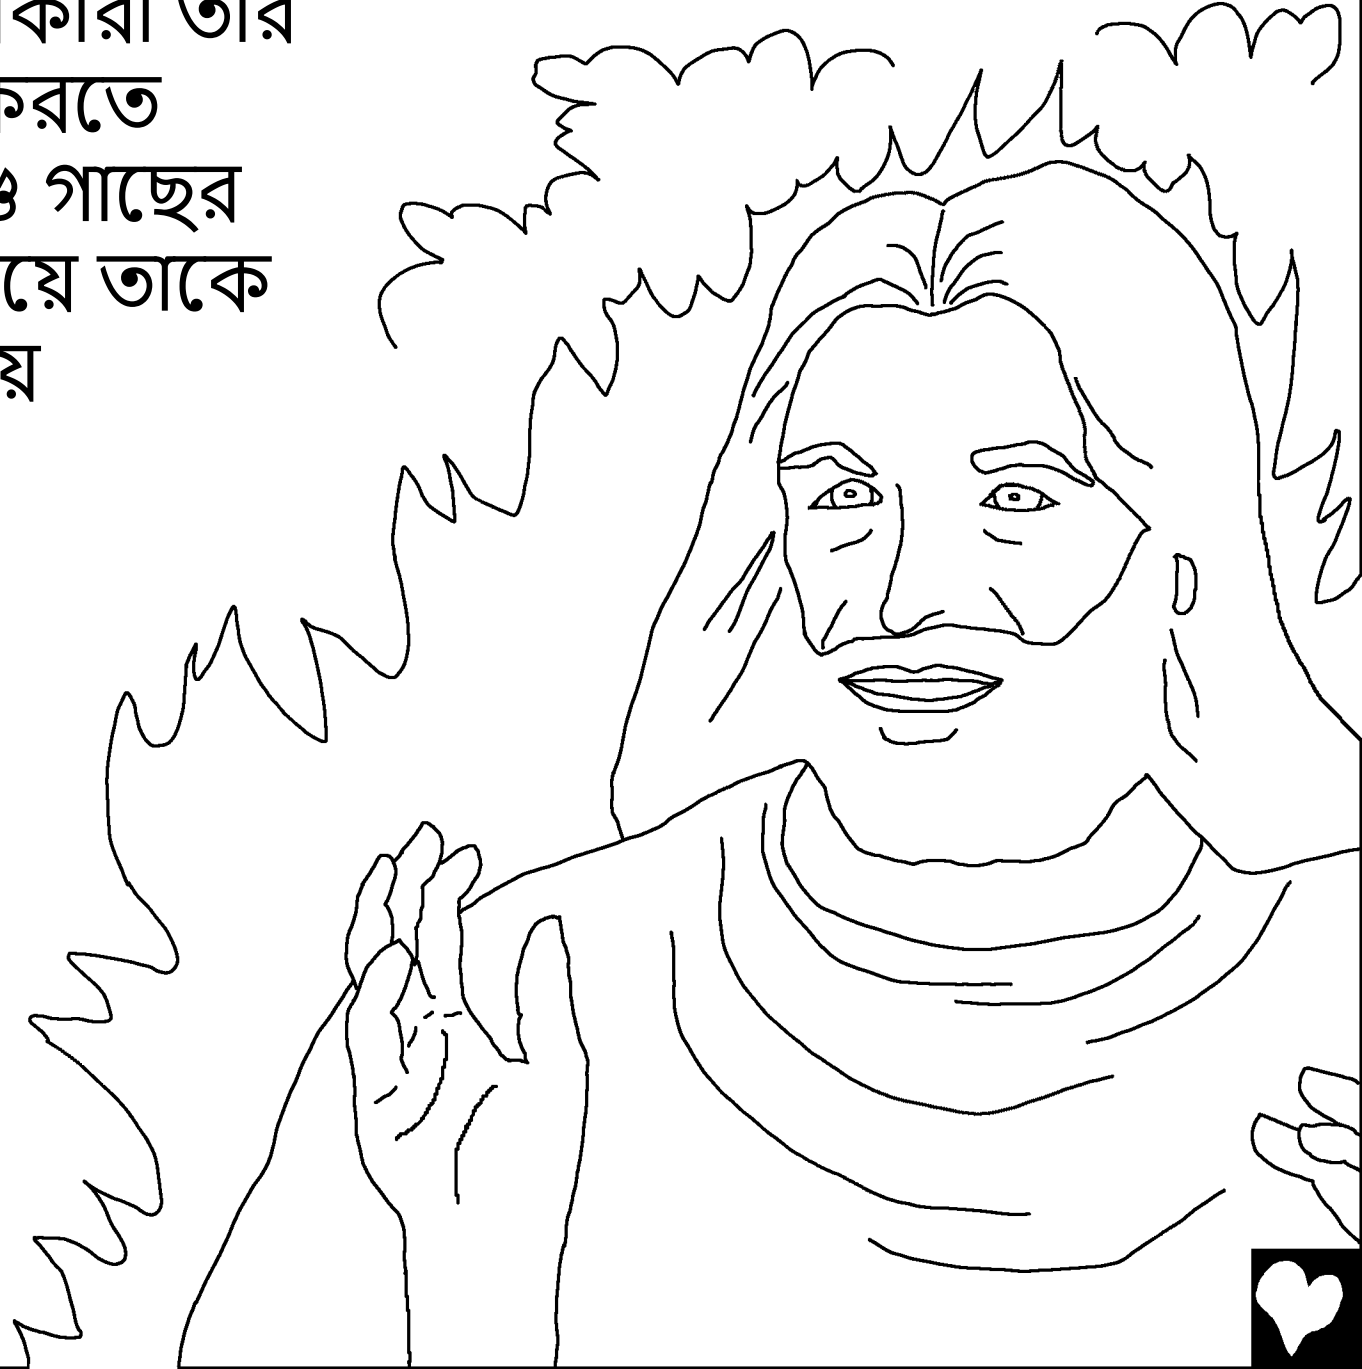 কারা তার
করতে
শু গাছের
য়ে তাকে
য়